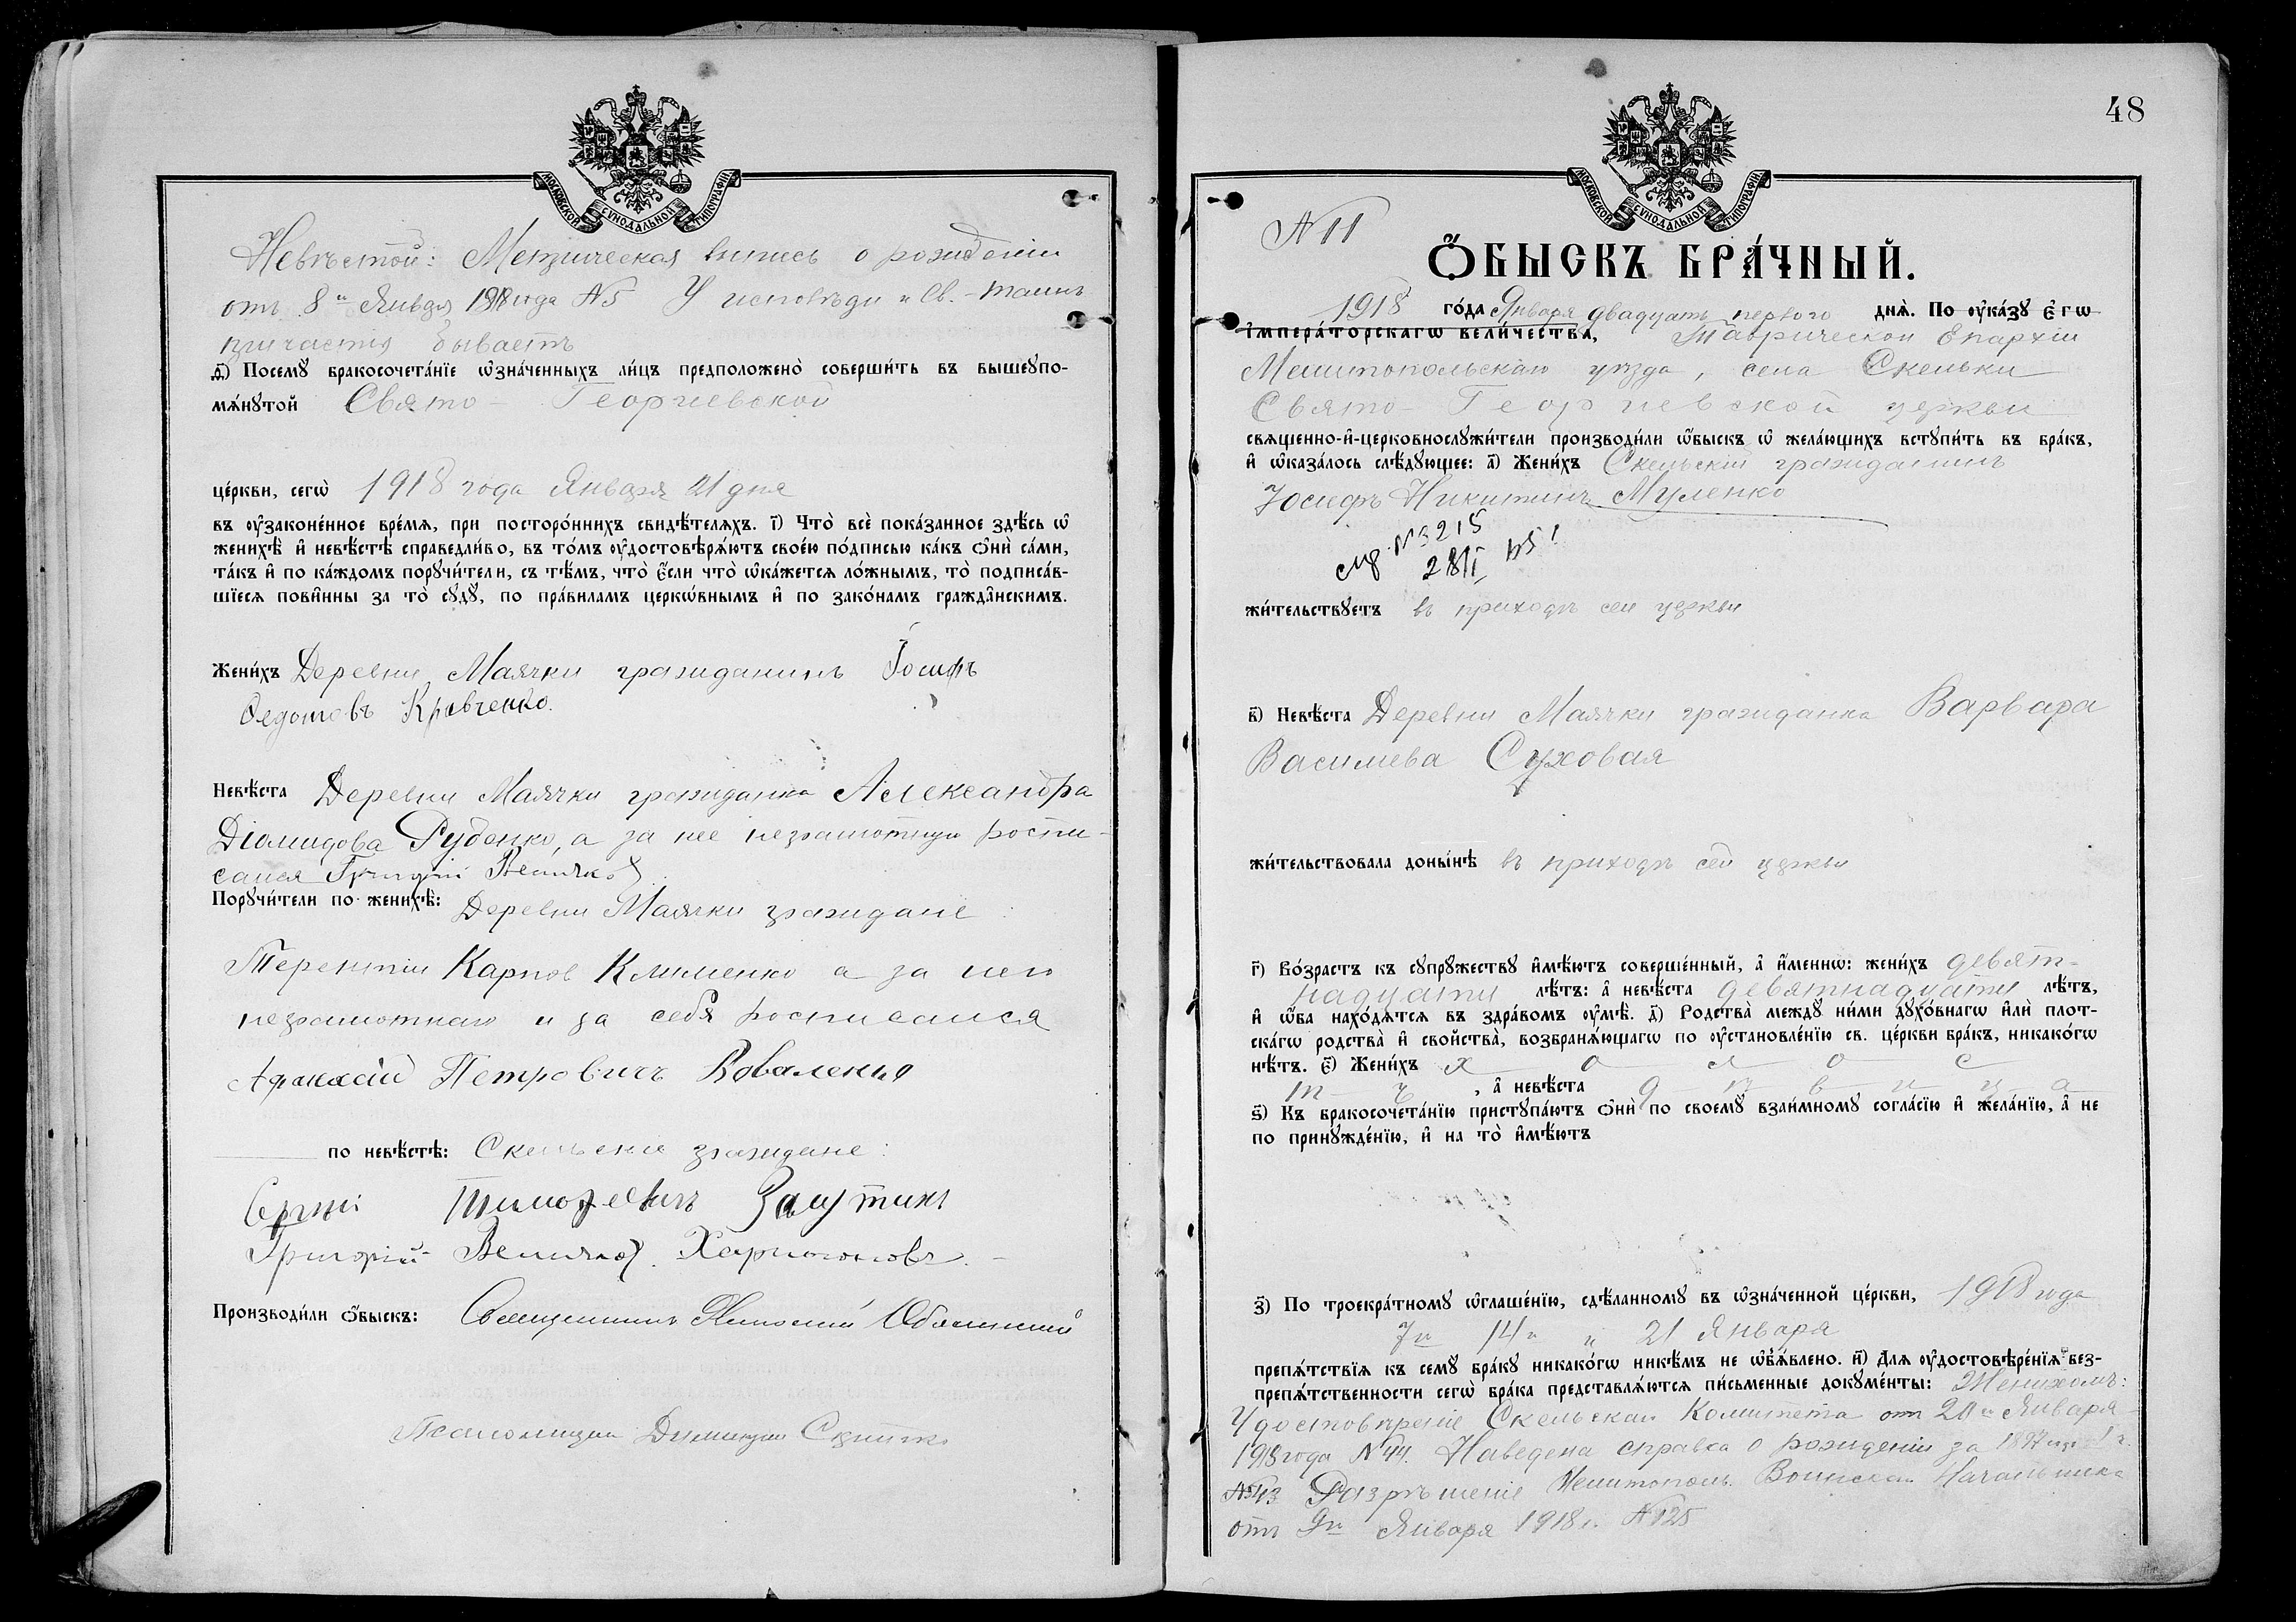 МОСКОВСКОЙ СѴНОДАЛЬНОЙ ТИПОГРАФІИ
Невѣстой: Метрическая выпись о рожденіи
отъ 8го Января 1918 года №5 У исповѣди и Св. Таинъ
причастія бываетъ
д҃) Посемꙋ бракосочета́нїе ѡ҆зна́ченныхъ ли́цъ предположено̀ соверши́ть въ вышеꙋпо-
мѧ́нꙋтой Свято-Георгіевской
це́ркви, сегѡ̀ 1918 года Января 21 дня
въ ᲂу҆законе́нное вре́мѧ, при посторо́ннихъ свидѣ́телѧхъ. і҃) Что̀ всѐ пока́занное здѣ́сь ѡ҆
женихѣ̀ и҆ невѣ́стѣ справедли́во, въ то́мъ ᲂу҆достовѣрѧ́ютъ свое́ю по́дписью ка́къ ѻ҆нѝ са́ми,
та́къ и҆ по ка́ждомъ порꙋчи́тели, съ тѣ́мъ, что̀ є҆́сли что̀ ѡ҆ка́жетсѧ ло́жнымъ, то̀ подписа́в-
шїесѧ пови́нны за то̀ сꙋдꙋ̀, по пра́виламъ церко́внымъ и҆ по зако́намъ гражда́нскимъ.
Жени́хъ Деревни Маячки гражданинъ Іосифъ
Ѳедотовъ Кравченко.
Невѣ́ста Деревни Маячки гражданка Александра
Діомидова Руденко, а за нее неграмотную роспи-
сался Григорій
Порꙋчи́тели по женихѣ̀: Деревни Маячки граждане:
Терентій Карпов Клименко а за него
неграмотнаго и за себя росписался
Афанасій Петровичъ Коваленко
по невѣ́стѣ: Скельскіе граждане:
Сергѣй Тимофеевичъ
Григорій Харитоновъ.
Производи́ли ѻ҆́быскъ: Священникъ Николай
Псаломщикъ Димитрій
48
МОСКОВСКОЙ СѴНОДАЛЬНОЙ ТИПОГРАФІИ
№ 11
Ѻ҆́БЫСКЪ БРА́ЧНЫЙ.
1918 го́да Января двадцать перваго днѧ̀. По ᲂу҆ка́зꙋ є҆гѡ̀
і҆мпера́торскагѡ вели́чества, Таврической Епархіи
Мелитопольскаго уѣзда, села Скельки
Свято-Георгіевской церкви
свѧще́нно-и҆-церковнослꙋжи́тели производи́ли ѡ҆́быскъ ѡ҆ жела́ющихъ встꙋпи́ть въ бра́къ,
и҆ ѡ҆каза́лось слѣ́дꙋющее: а҃) Жени́хъ Скельскій гражданинъ
Іосифъ Никитинъ Муленко
№3215
жи́тельствꙋетъ въ приходѣ сей церкви
в҃) Невѣ́ста Деревни Маячки гражданка Варвара
Василіева Суховая
жи́тельствовала доны́нѣ въ приходѣ сей церкви
г҃) Во́зрастъ къ сꙋпрꙋ́жествꙋ и҆мѣ́ютъ соверше́нный, а҆ и҆́меннѡ: жени́хъ девят-
надцати лѣ́тъ: а҆ невѣ́ста девятнадцати лѣ́тъ,
и҆ ѻ҆́ба нахо́дѧтсѧ въ здра́вомъ ᲂу҆мѣ̀. д҃) Родства̀ междꙋ̀ ни́ми дꙋхо́внагѡ и҆лѝ плот-
ска́гѡ родства̀ и҆ сво́йства̀, возбранѧ́ющагѡ по ᲂу҆становле́нїю св. це́ркви бра́къ, никако́гѡ
нѣ́тъ. є҃) Жени́хъ х о л о с
т ъ, а҆ невѣ́ста д ѣ в и ц а
ѕ҃) Къ бракосочета́нїю пристꙋпа́ютъ ѻ҆нѝ по своемꙋ̀ взаи́мномꙋ согла́сїю и҆ жела́нїю, а҆ не
по принꙋжде́нїю, и҆ на то̀ и҆мѣ́ютъ
з҃) По троекра́тномꙋ ѡ҆глаше́нїю, сдѣ́ланномꙋ въ ѡ҆зна́ченной це́ркви, 1918 года
7го 14го и 21 Января
препѧ́тствїѧ къ семꙋ̀ бра́кꙋ никако́гѡ никѣ́мъ не ѡ҆б̾ѧ́влено. и҃) Длѧ ᲂу҆достовѣре́нїѧ без-
препѧ́тственности сегѡ̀ бра́ка представлѧ́ютсѧ пи́сьменные докꙋме́нты: Женихомъ:
Удостовѣреніе Скельскаго Комитета отъ 20го Января
1918 года №44. Наведена справка о рожденіи за 1897 г.
№43 Разрѣшеніе Мелитополь. Воинскаго Начальника
отъ 9го Января 1918 г. №125